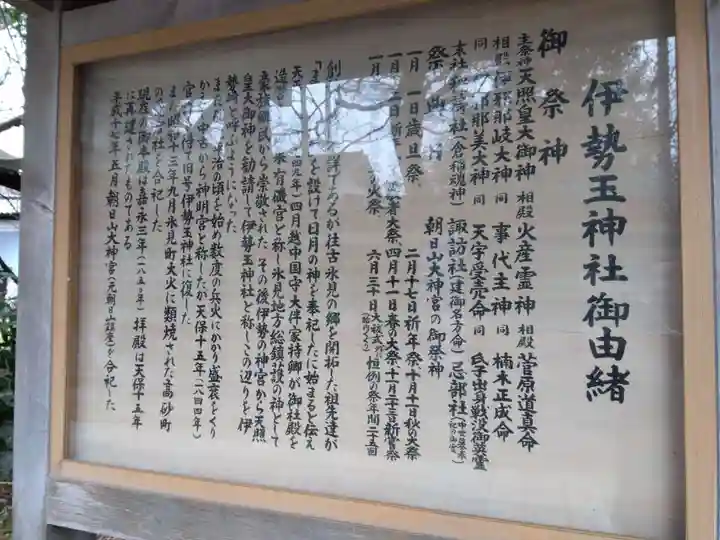 伊勢玉神社御由緒
御祭神
主祭神 天照皇大御神 相殿 火産霊神 相殿 菅原道真命
相殿 伊邪那岐大神 同 事代主神 同 楠木正成命
同 伊邪那美大神 同 天宇受売命 同 氏子出身戦没御英霊
末社 和諭社(倉稲魂神) 諏訪社(建御名方命) 忌部社
祭典 朝日山大神宮の御祭神
一月一日歳旦祭 二月十七日祈年祭 十月十一日秋の大祭
一月二日新 春大祭 四月十一日春の大祭 十一月二十三日新嘗祭
一月 の火祭 六月三十日大祓式 恒例の祭年間二五回
創 詳であるが往古氷見の郷を開拓した祖先達が
を設けて日月の神を奉祀したに始まると伝え
天 四九年)四月越中国守大伴家持卿が御社殿を
造 有磯宮と称し氷見地方総鎮護の神として
衆族国民から崇敬された その後伊勢の神宮から天照
皇大御神を勧請して伊勢玉神社と称しこの辺りを伊
勢 と呼ぶようになった
また 治の頃を始め数度の兵火にかかり盛衰をくり
か 中古から神明宮と称したが天保十五年(一八四四年)
官 得て旧号伊勢玉神社に復した
また昭和十三年九月氷見町大火に類焼された高砂町
の 社を合祀した
現在の御本殿は嘉永三年(一八五〇年)拝殿は天保十五年
に再建されたものである
平成十七年五月 朝日山大神宮(元朝日山鎮座)を合祀した